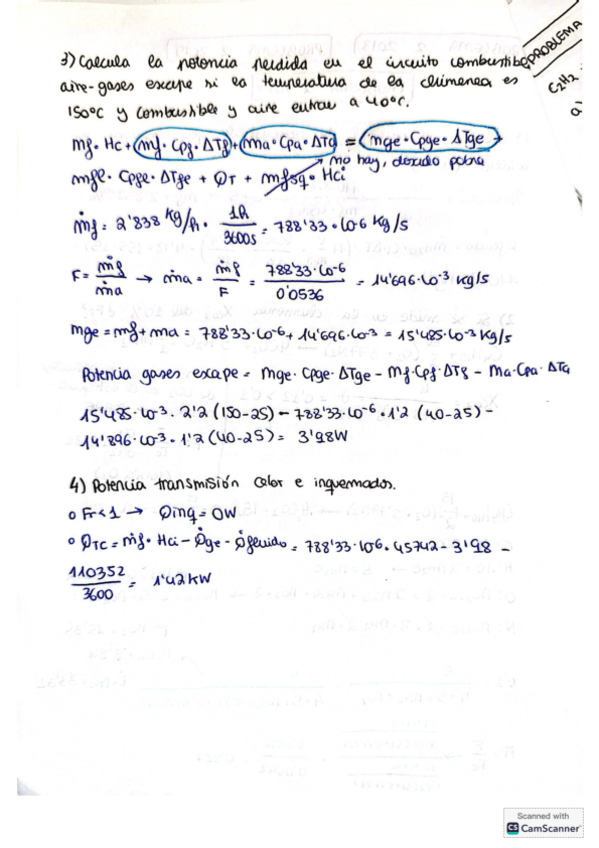 3) Calcula la potencia perdida en el circuito combustible
aire-gases escape si la temperatura de la chimenea es
150ºC y combustible y aire entran a 40ºC.
PROBLEMA
C2H2
a)
mf · Hc + mf · Cpf · ΔTf + ma · Cpa · ΔTa = mge · Cpge · ΔTge →
no hay, dosado pobre
mge · Cpge · ΔTge + QT + mfsq · Hci
ṁf = 2'838 kg/h · 1h/3600s = 788'33 · 10-6 kg/s
F = ṁf/ṁa → ṁa = ṁf/F = 788'33·10-6/0'0536 = 14'696·10-3 kg/s
mge = mf + ma = 788'33·10-6 + 14'696·10-3 = 15'485·10-3 kg/s
Potencia gases escape = mge · Cpge · ΔTge - mf · Cpf · ΔTf - ma · Cpa · ΔTa
15'485·10-3 · 2'2 (150-25) - 788'33·10-6 · 1'2 (40-25) -
14'896·10-3 · 1'2 (40-25) = 3'98W
4) Potencia transmisión calor e inquemados.
o Fr<1 → Q̇inq = 0W
o Q̇TC = ṁf · Hci - Q̇ge - Q̇fluido = 788'33·10-6 · 45742 - 3'98 -
110352/3600 = 1'42 kW
Scanned with
CS CamScanner